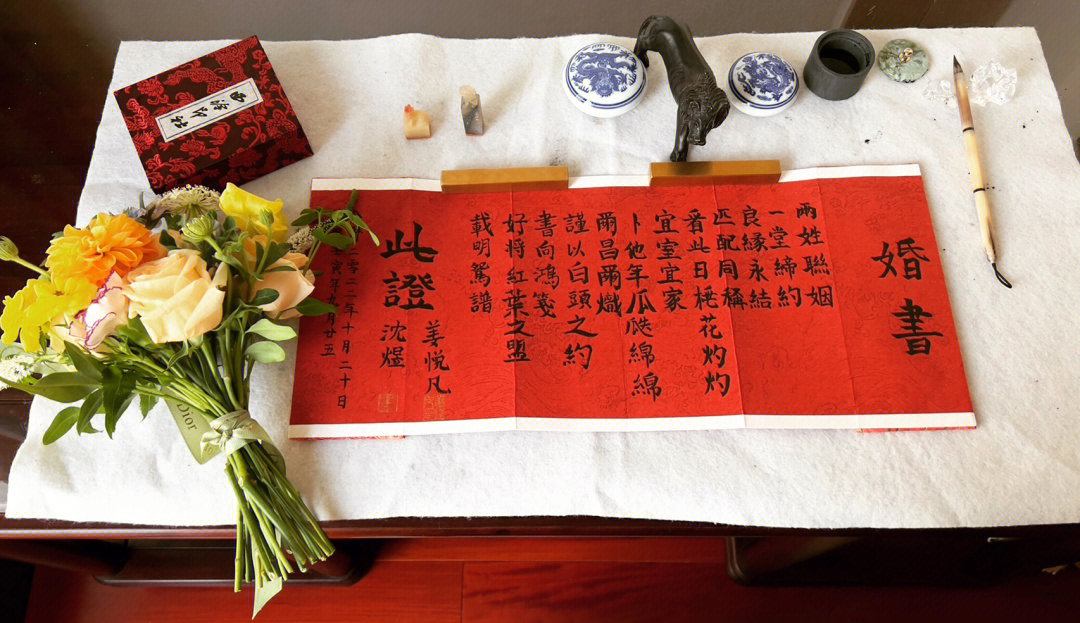 婚書
兩姓聯姻
一堂締約
良緣永結
匹配同稱
看此日桃花灼灼
宜室宜家
卜他年瓜瓞綿綿
爾昌爾熾
謹以白頭之約
書向鴻箋
好將紅葉之盟
載明鴛譜
此證
姜悦凡
沈煜
二零二二年十月二十日
壬寅年九月廿五
西泠印社
Dior